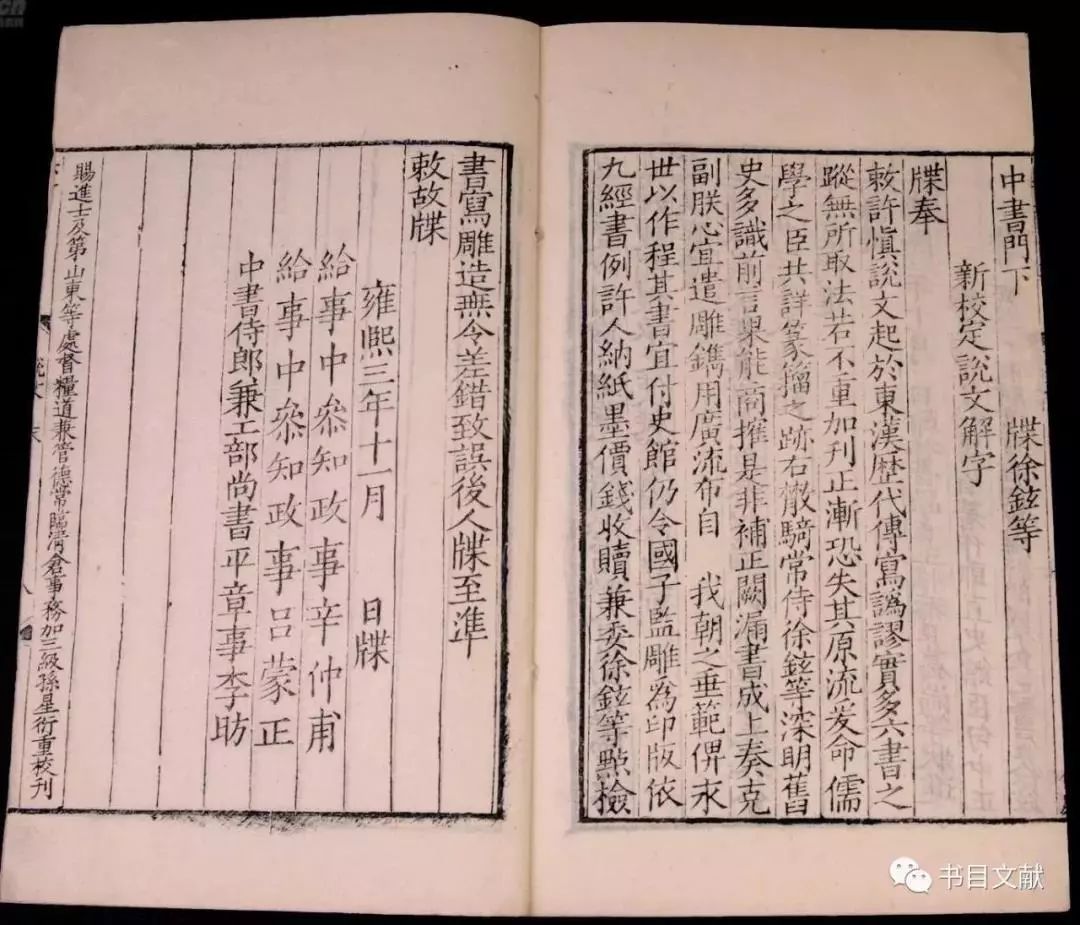 中書門下　牒徐鉉等
新校定說文解字
牒奉
敕許愼說文起於東漢歷代傳寫譌謬實多六書之
蹤無所取法若不重加刊正漸恐失其原流爰命儒
學之臣共詳篆籀之跡右散騎常侍徐鉉等深明舊
史多識前言果能商搉是非補正闕漏書成上奏克
副朕心宜遣雕鐫用廣流布自　我朝之垂範俾永
世以作程其書宜付史館仍令國子監雕爲印版依
九經書例許人納紙墨價錢收贖兼委徐鉉等點檢
書寫雕造無令差錯致誤後人牒至準
敕故牒
雍熙三年十一月　日牒
給事中參知政事辛仲甫
給事中參知政事呂蒙正
中書侍郎兼工部尚書平章事李昉
賜進士及第山東等處督糧道兼管德常臨清倉事務加三級孫星衍重校刊
书目文献